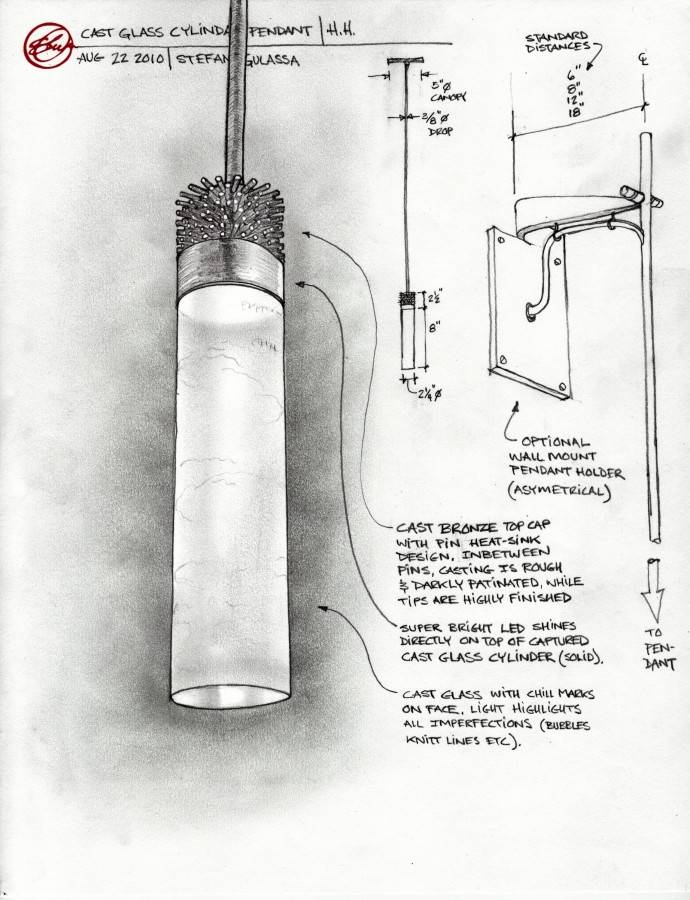 CAST GLASS CYLINDA PENDANT | H.H.
AUG 22 2010 | STEFAN GULASSA
STANDARD
DISTANCES
6"
8"
12"
18"
℄
5"Ø
CANOPY
3/8"Ø
DROP
2½"
8"
2¼"Ø
OPTIONAL
WALL MOUNT
PENDANT HOLDER
(ASYMETRICAL)
CAST BRONZE TOP CAP
WITH PIN HEAT-SINK
DESIGN. INBETWEEN
PINS, CASTING IS ROUGH
& DARKLY PATINATED, WHILE
TIPS ARE HIGHLY FINISHED
SUPER BRIGHT LED SHINES
DIRECTLY ON TOP OF CAPTURED
CAST GLASS CYLINDER (SOLID).
CAST GLASS WITH CHILL MARKS
ON FACE. LIGHT HIGHLIGHTS
ALL IMPERFECTIONS (BUBBLES
KNITT LINES ETC).
TO
PEN-
DANT